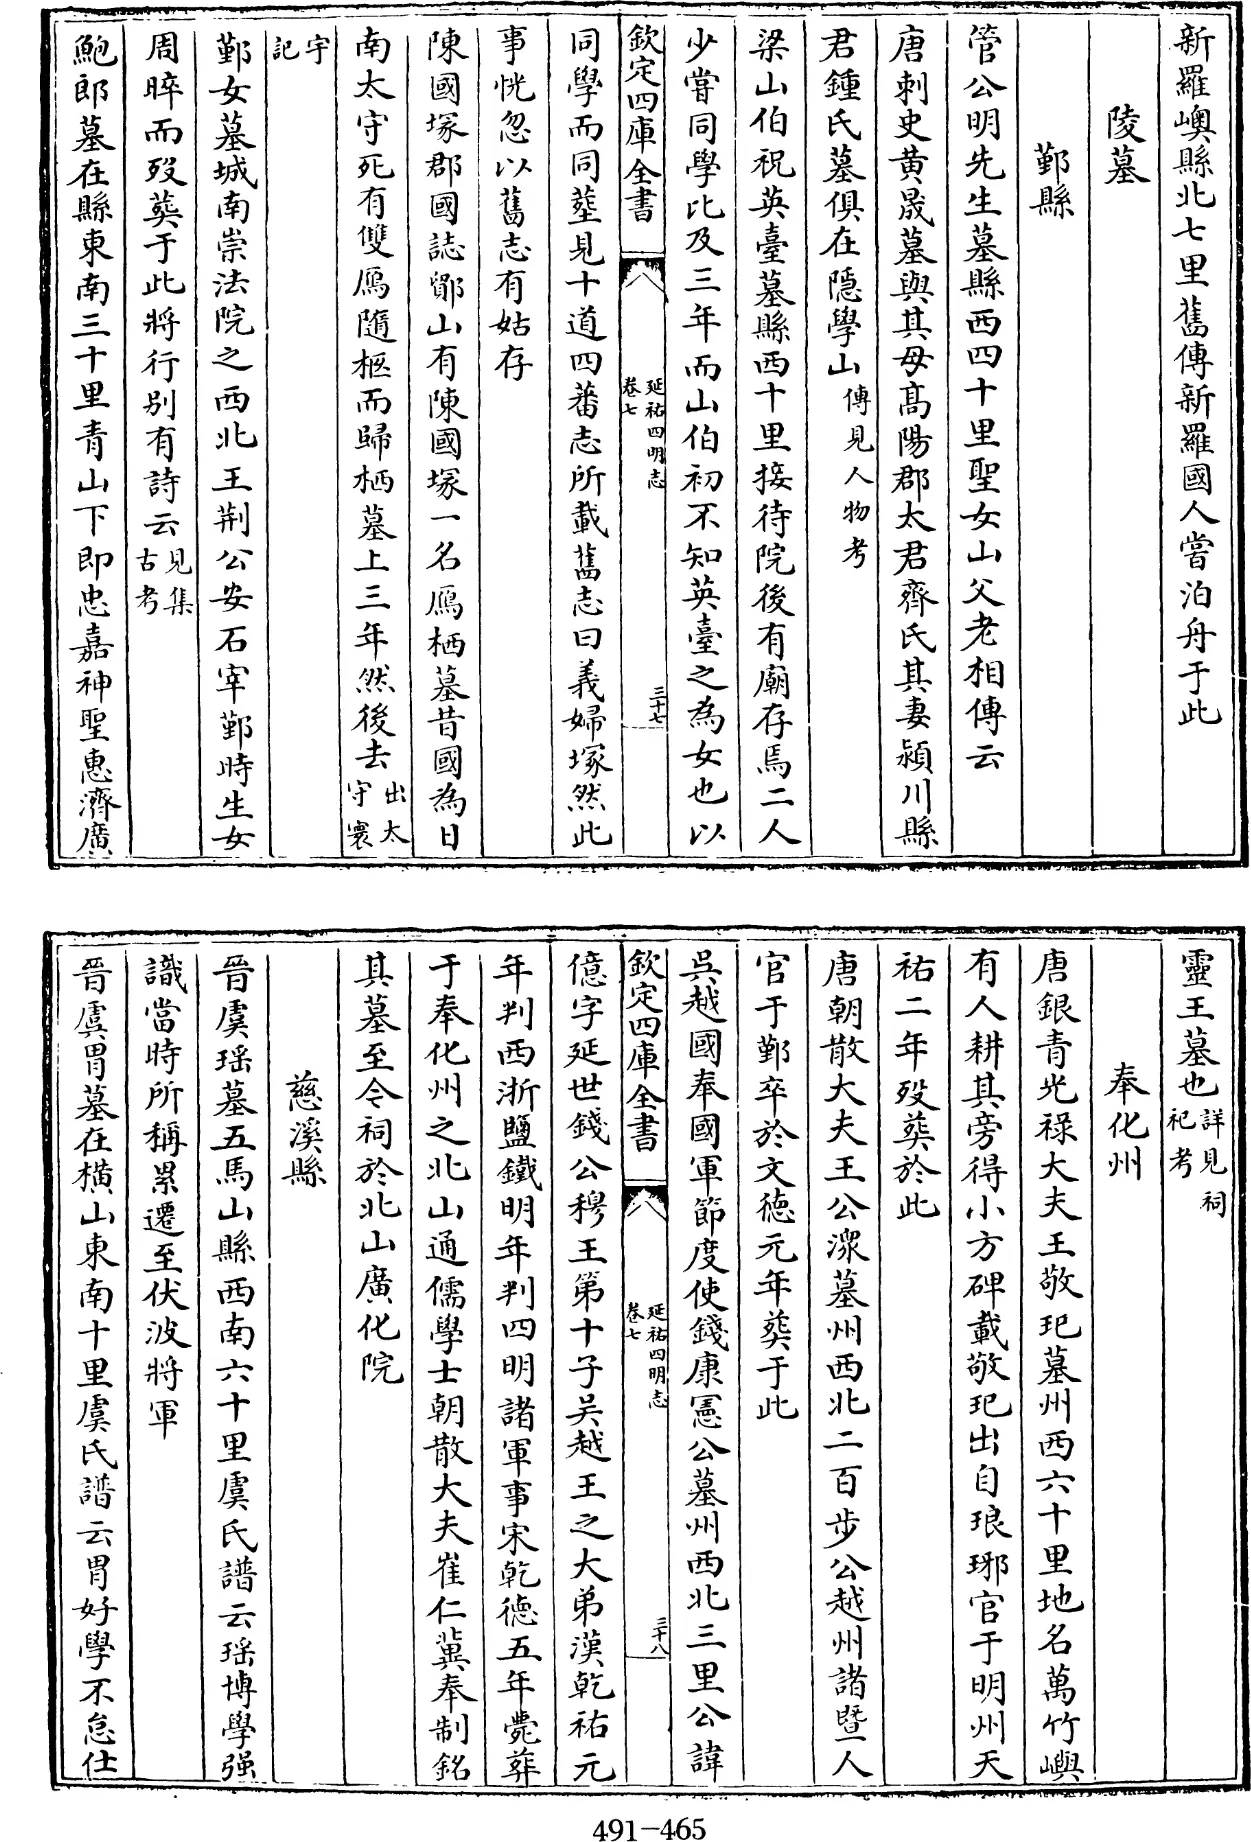 新羅嶼縣北七里舊傳新羅國人嘗泊舟于此
陵墓
鄞縣
管公明先生墓縣西四十里聖女山父老相傳云
唐刺史黄晟墓與其母髙陽郡太君齊氏其妻潁川縣
君鍾氏墓俱在隱學山傳見人物考
梁山伯祝英臺墓縣西十里接待院後有廟存焉二人
少嘗同學比及三年而山伯初不知英臺之為女也以
欽定四庫全書
延祐四明志
卷七
三十七
同學而同塟見十道四蕃志所載舊志曰義婦塚然此
事恍忽以舊志有姑存
陳國塚郡國誌鄮山有陳國塚一名鴈栖墓昔國為日
南太守死有雙鴈隨柩而歸栖墓上三年然後去出太守寰
宇記
鄞女墓城南崇法院之西北王荆公安石宰鄞時生女
周晬而殁葬于此將行别有詩云見集古考
鮑郎墓在縣東南三十里青山下即忠嘉神聖惠濟廣
靈王墓也詳見祠祀考
奉化州
唐銀青光禄大夫王敬玘墓州西六十里地名萬竹嶼
有人耕其旁得小方碑載敬玘出自琅琊官于明州天
祐二年殁葬於此
唐朝散大夫王公潈墓州西北二百步公越州諸暨人
官于鄞卒於文徳元年葬于此
吳越國奉國軍節度使錢康憲公墓州西北三里公諱
欽定四庫全書
延祐四明志
卷七
三十八
億字延世錢公穆王第十子吴越王之大弟漢乾祐元
年判西浙鹽鐵明年判四明諸軍事宋乾徳五年薨葬
于奉化州之北山通儒學士朝散大夫崔仁冀奉制銘
其墓至今祠於北山廣化院
慈溪縣
晉虞瑶墓五馬山縣西南六十里虞氏譜云瑶博學强
識當時所稱累遷至伏波將軍
晉虞胄墓在横山東南十里虞氏譜云胄好學不怠仕
491-465